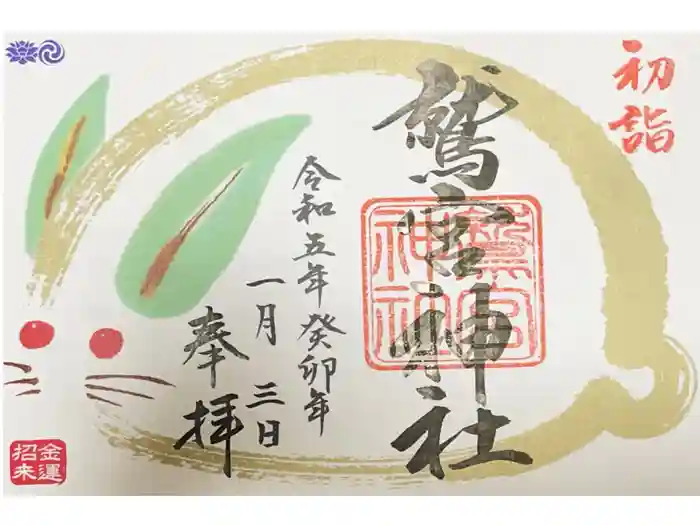 初詣
鷲宮神社
鷲宮
神社
令和五年癸卯年
一月三日
奉拝
金運
招来